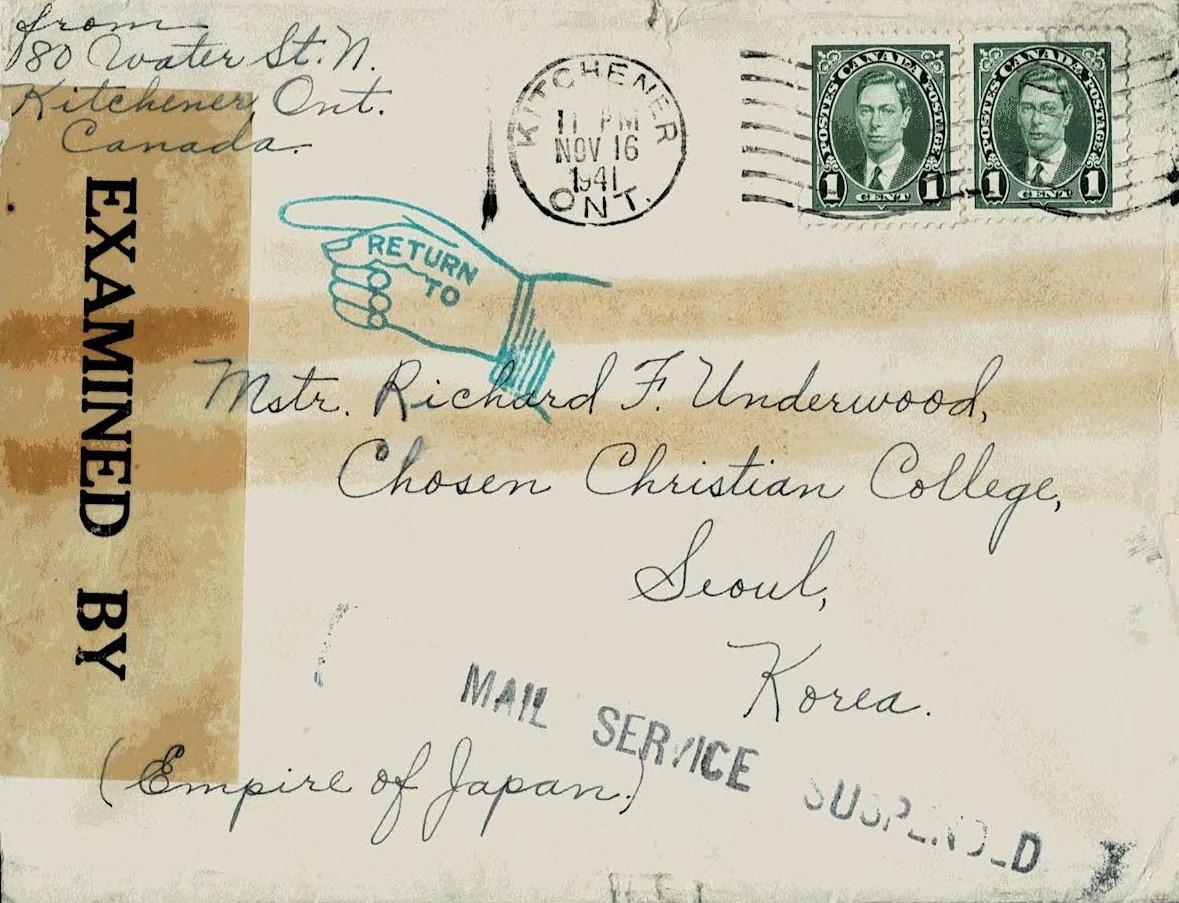 from
180 Water St. N.
Kitchener, Ont.
Canada.
KITCHENER
11 PM
NOV 16
1941
ONT.
POSTES CANADA POSTAGE
1 CENT 1
POSTES CANADA POSTAGE
1 CENT 1
EXAMINED BY
RETURN
TO
Mstr. Richard F. Underwood,
Chosen Christian College,
Seoul,
Korea.
(Empire of Japan.)
MAIL SERVICE SUSPENDED